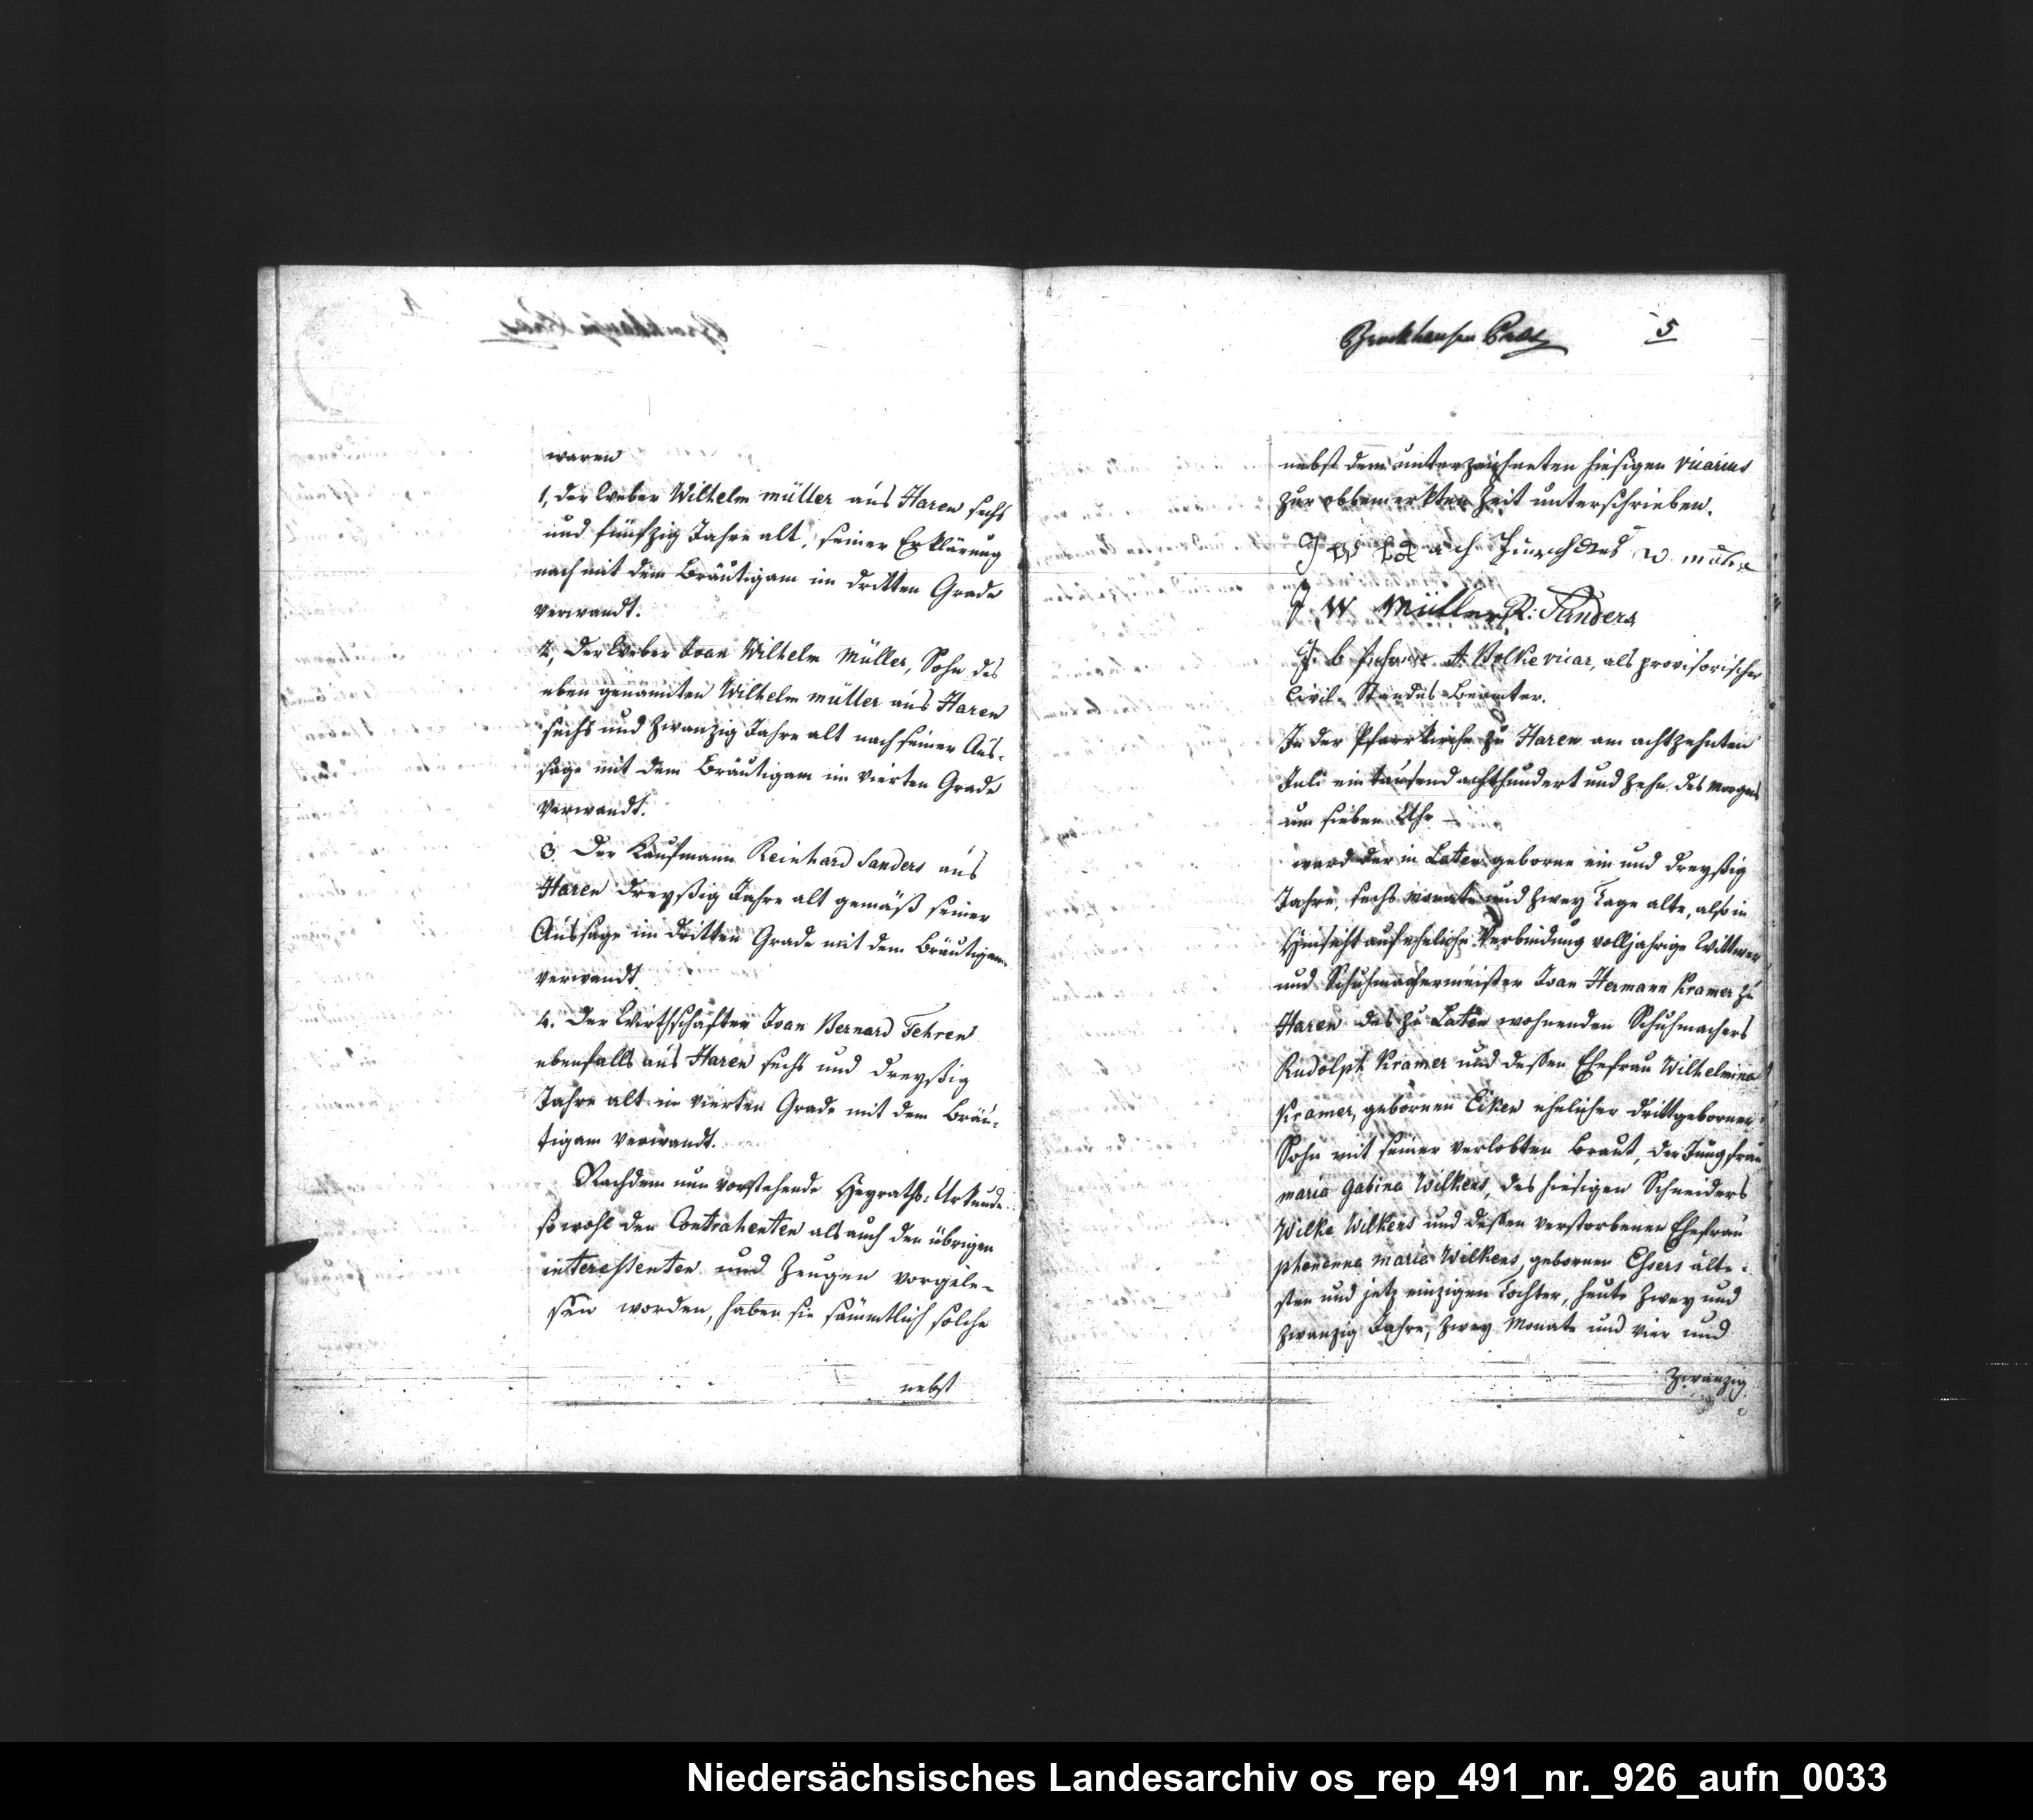 waren
1, der Weber Wilhelm müller aus Haren sechs
und fünfzig Jahre alt, seiner Erklärung
nach mit dem Bräutigam im dritten Grade
verwandt.
2, Der Weber Joan Wilhelm Müller, Sohn des
eben genannten Wilhelm müller aus Haren
sechs und zwanzig Jahre alt nach seiner Aus-
sage mit dem Bräutigam im vierten Grade
verwandt.
3. Der Kaufmann Reinhard Sanders aus
Haren dreyßig Jahre alt gemäß seiner
Aussage im dritten Grade mit dem Bräutigam
verwandt
4. Der Wirthschafter Joan Bernard Fehren
ebenfalls aus Haren sechs und dreyßig
Jahre alt im vierten Grade mit dem Bräu-
tigam verwandt.
Nachdem nun vorstehende Heyraths-Urkunde
sowohl den Contrahenten als auch den übrigen
interessenten und Zeugen vorgele-
sen worden, haben sie sämmtlich solche
nebst
Brockhausen 5
nebst dem unterzeichneten hiesigen vicarius
zur obbemerkten Zeit unterschrieben.
J W
J W Müller R: Sanders
J. B A. Volke vicar, als provisorischer
Civil-Standes Beamter.
In der Pfarrkirche zu Haren am achtzehnten
Juli ein tausend achthundert und zehn des morgens
um sieben Uhr
ward der in Laten geborne ein und dreyßig
Jahre, sechs monate und zwey Tage alte, also in
Hinsicht auf eheliche Verbindung volljahrige Wittwer
und Schuhmachermeister Joan Hermann Kramer zu
Haren des zu Laten wohnenden Schuhmachers
Rudolph Kramer und dessen Ehefrau Wilhelmina
Kramer, gebornen Eiken ehelicher drittgeborner
Sohn mit seiner verlobten Braut, der Jungfrau
maria Gabina Wilkens, des hiesigen Schneiders
Wilke Wilkens und dessen verstorbenen Ehefrau
maria Wilkens, gebornen Essers älte-
sten und jetz einzigen Tochter, heute zwey und
zwanzig Jahre, zwey Monate und vier und
zwanzig
Niedersächsisches Landesarchiv os_rep_491_nr._926_aufn_0033